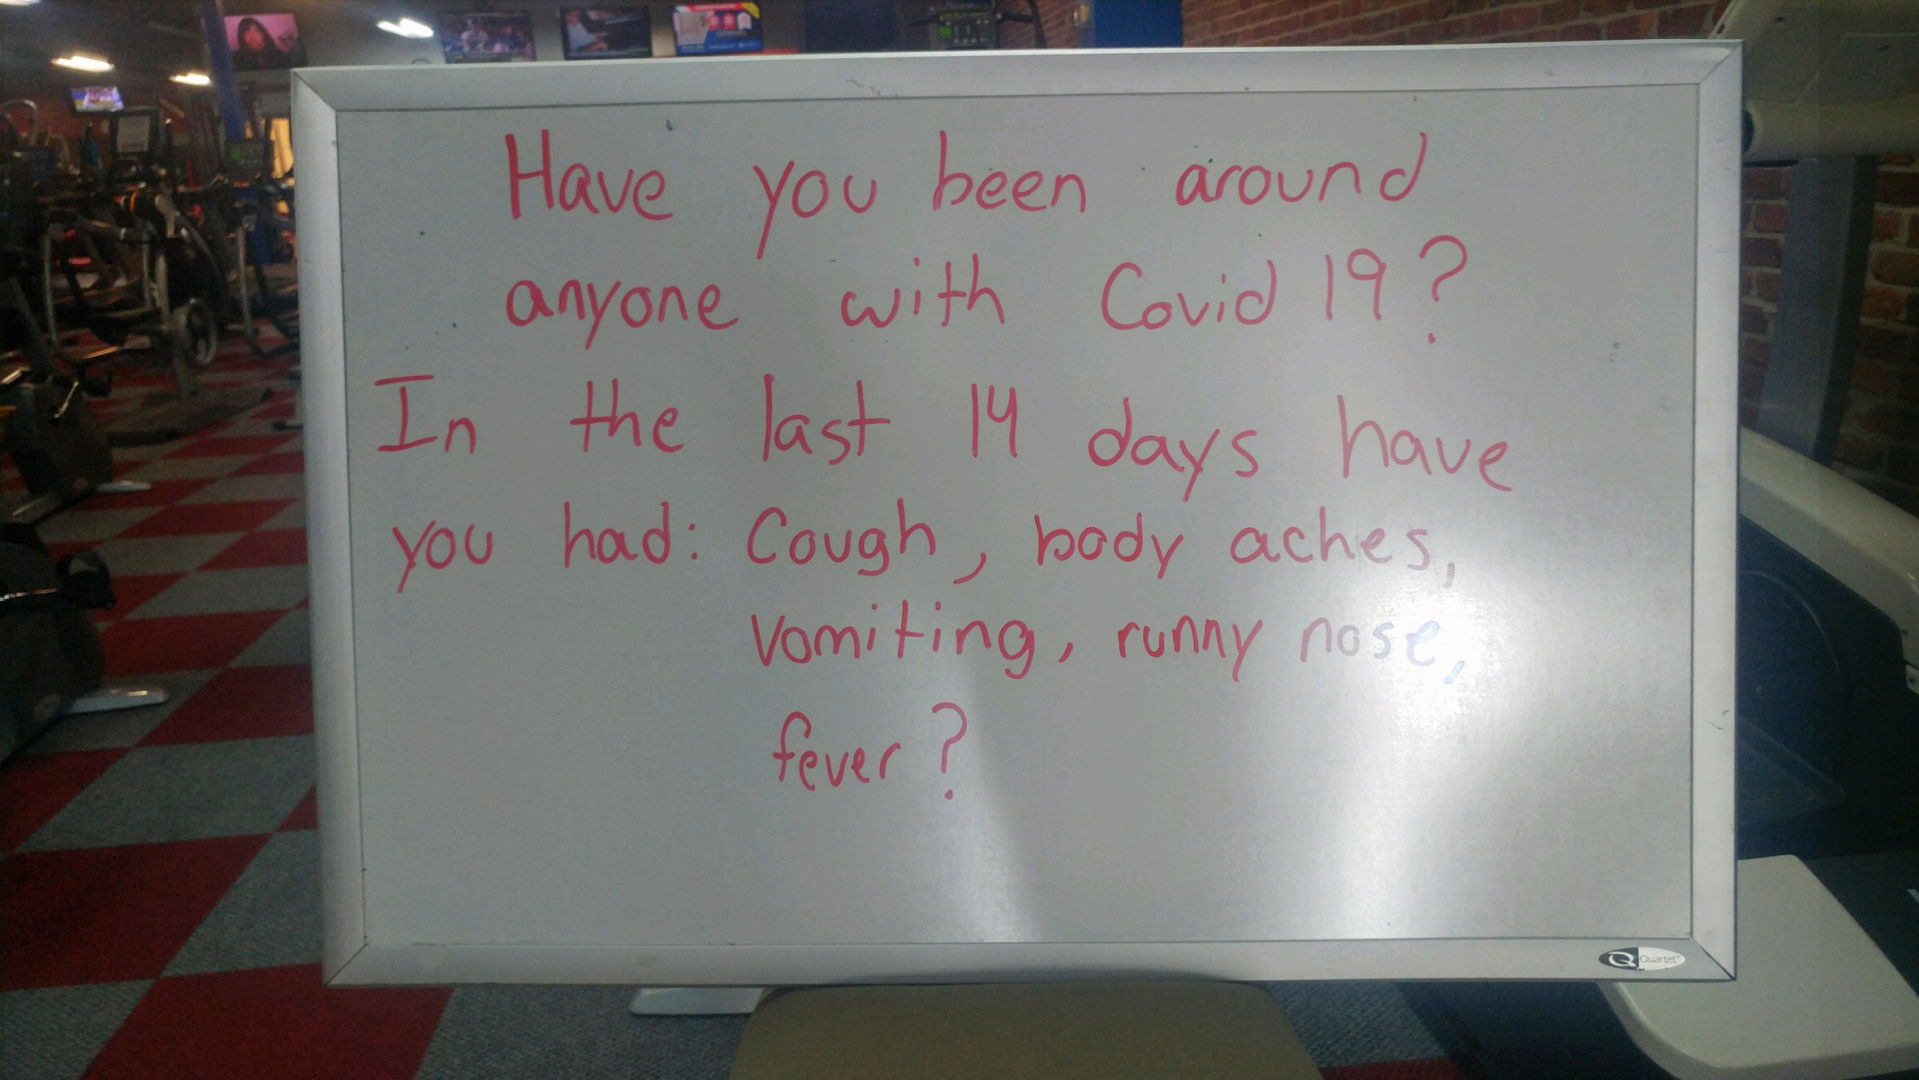 Have you been around
anyone with Covid 19?
In the last 14 days have
you had: Cough, body aches,
vomiting, runny nose,
fever?
Quartet